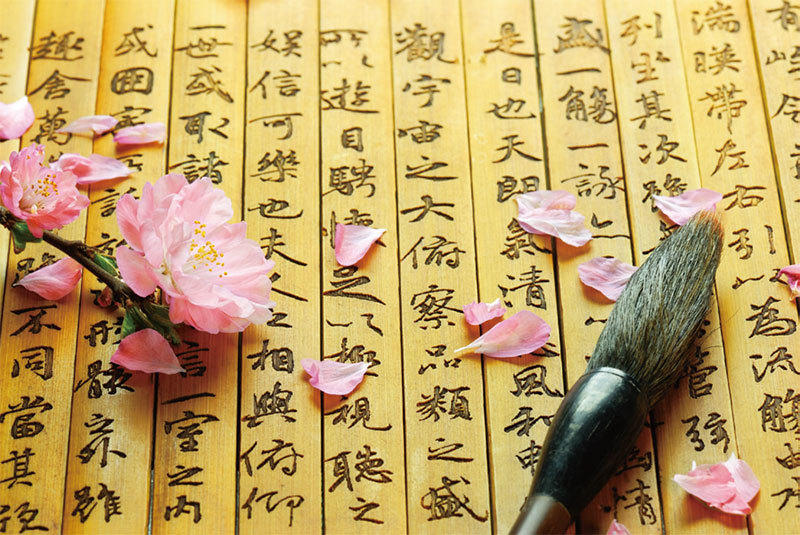 湍暎帶左右引以為流觴曲
列坐其次管弦
盛一觴一詠幽情
是日也天朗氣清風和
觀宇宙之大俯察品類之盛
所以遊目騁足以極視聽之
娛信可樂也夫人之相與俯仰
一世或取諸言一室之內
或因寄形骸之外雖
趣舍萬不同當其欣